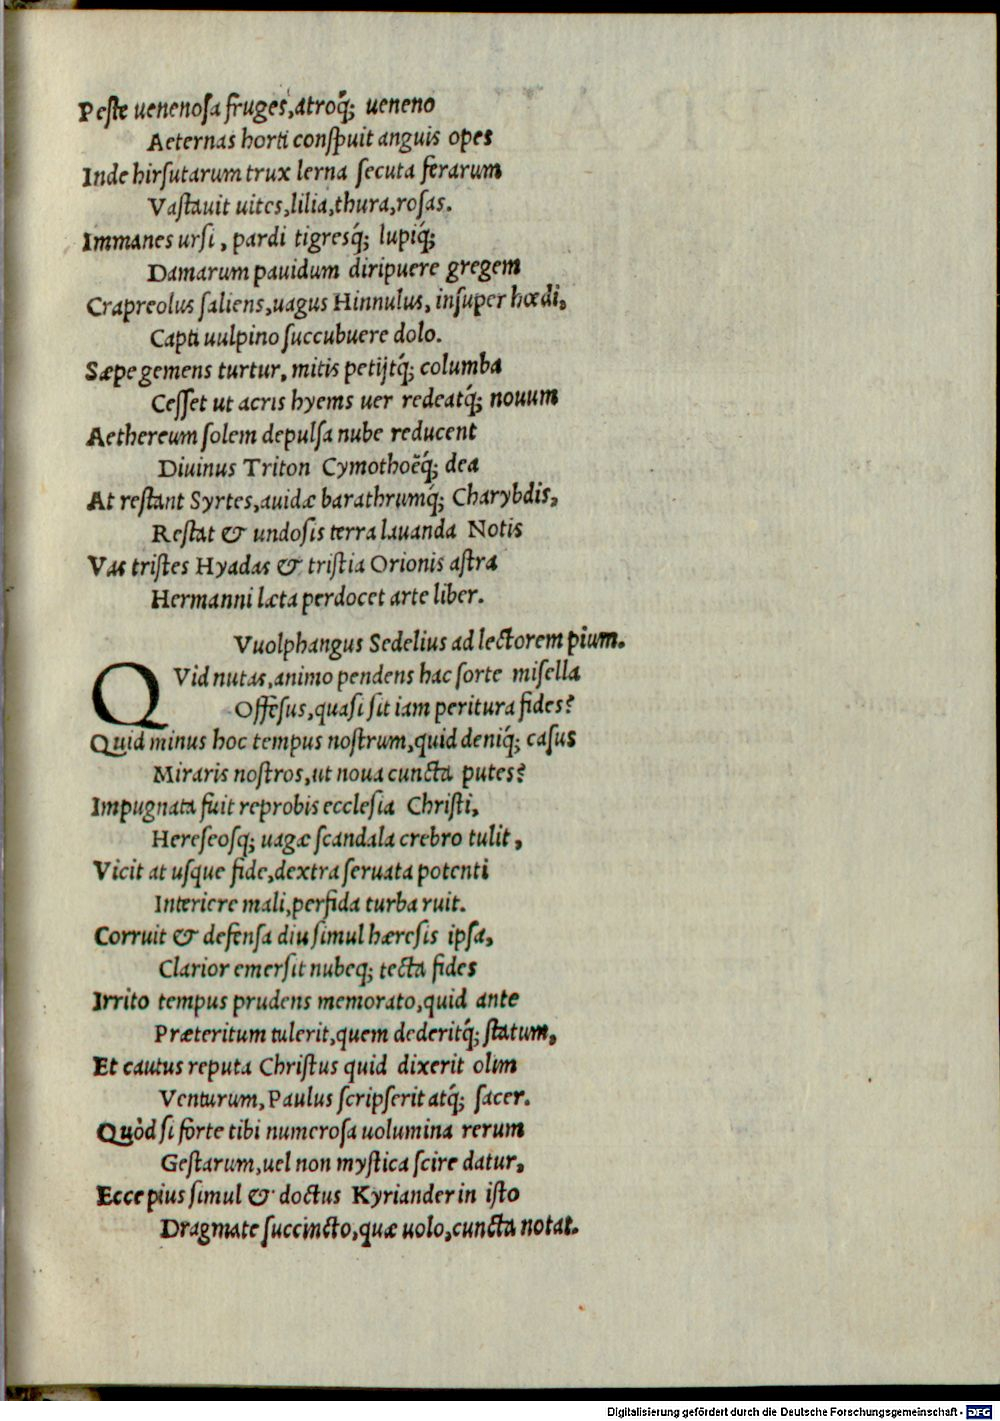 Peste uenenosa fruges, atroq́; ueneno
Aeternas horti conspuit anguis opes
Inde hirsutarum trux lerna secuta ferarum
Vastauit uites, lilia, thura, rosas.
Immanes ursi, pardi tigresq́; lupiq́;
Damarum pauidum diripuere gregem
Crapreolus saliens, uagus Hinnulus, insuper hœdi,
Capti uulpino succubuere dolo.
Sæpe gemens turtur, mitis petijtq́; columba
Cesset ut acris hyems uer redeatq́; nouum
Aethereum solem depulsa nube reducent
Diuinus Triton Cymothoëq́; dea
At restant Syrtes, auidæ barathrumq́; Charybdis,
Restat & undosis terra lauanda Notis
Vas tristes Hyadas & tristia Orionis astra
Hermanni læta perdocet arte liber.
Vuolphangus Sedelius ad lectorem pium.
QVid nutas, animo pendens hac sorte misella
Offesus, quasi sit iam peritura fides?
Quid minus hoc tempus nostrum, quid deniq́; casus
Miraris nostros, ut noua cuncta putes?
Impugnata fuit reprobis ecclesia Christi,
Hereseosq; uagæ scandala crebro tulit,
Vicit at usque fide, dextra seruata potenti
Interiere mali, perfida turba ruit.
Corruit & defensa diu simul hæresis ipsa,
Clarior emersit nubeq; tecta fides
Irrito tempus prudens memorato, quid ante
Præteritum tulerit, quem dederitq́; statum,
Et cautus reputa Christus quid dixerit olim
Venturum, Paulus scripserit atq́; sacer.
Quòd si forte tibi numerosa uolumina rerum
Gestarum, uel non mystica scire datur,
Ecce pius simul & doctus Kyriander in isto
Dragmate succincto, quæ uolo, cuncta notat.
Digitalisierung gefördert durch die Deutsche Forschungsgemeinschaft - DFG